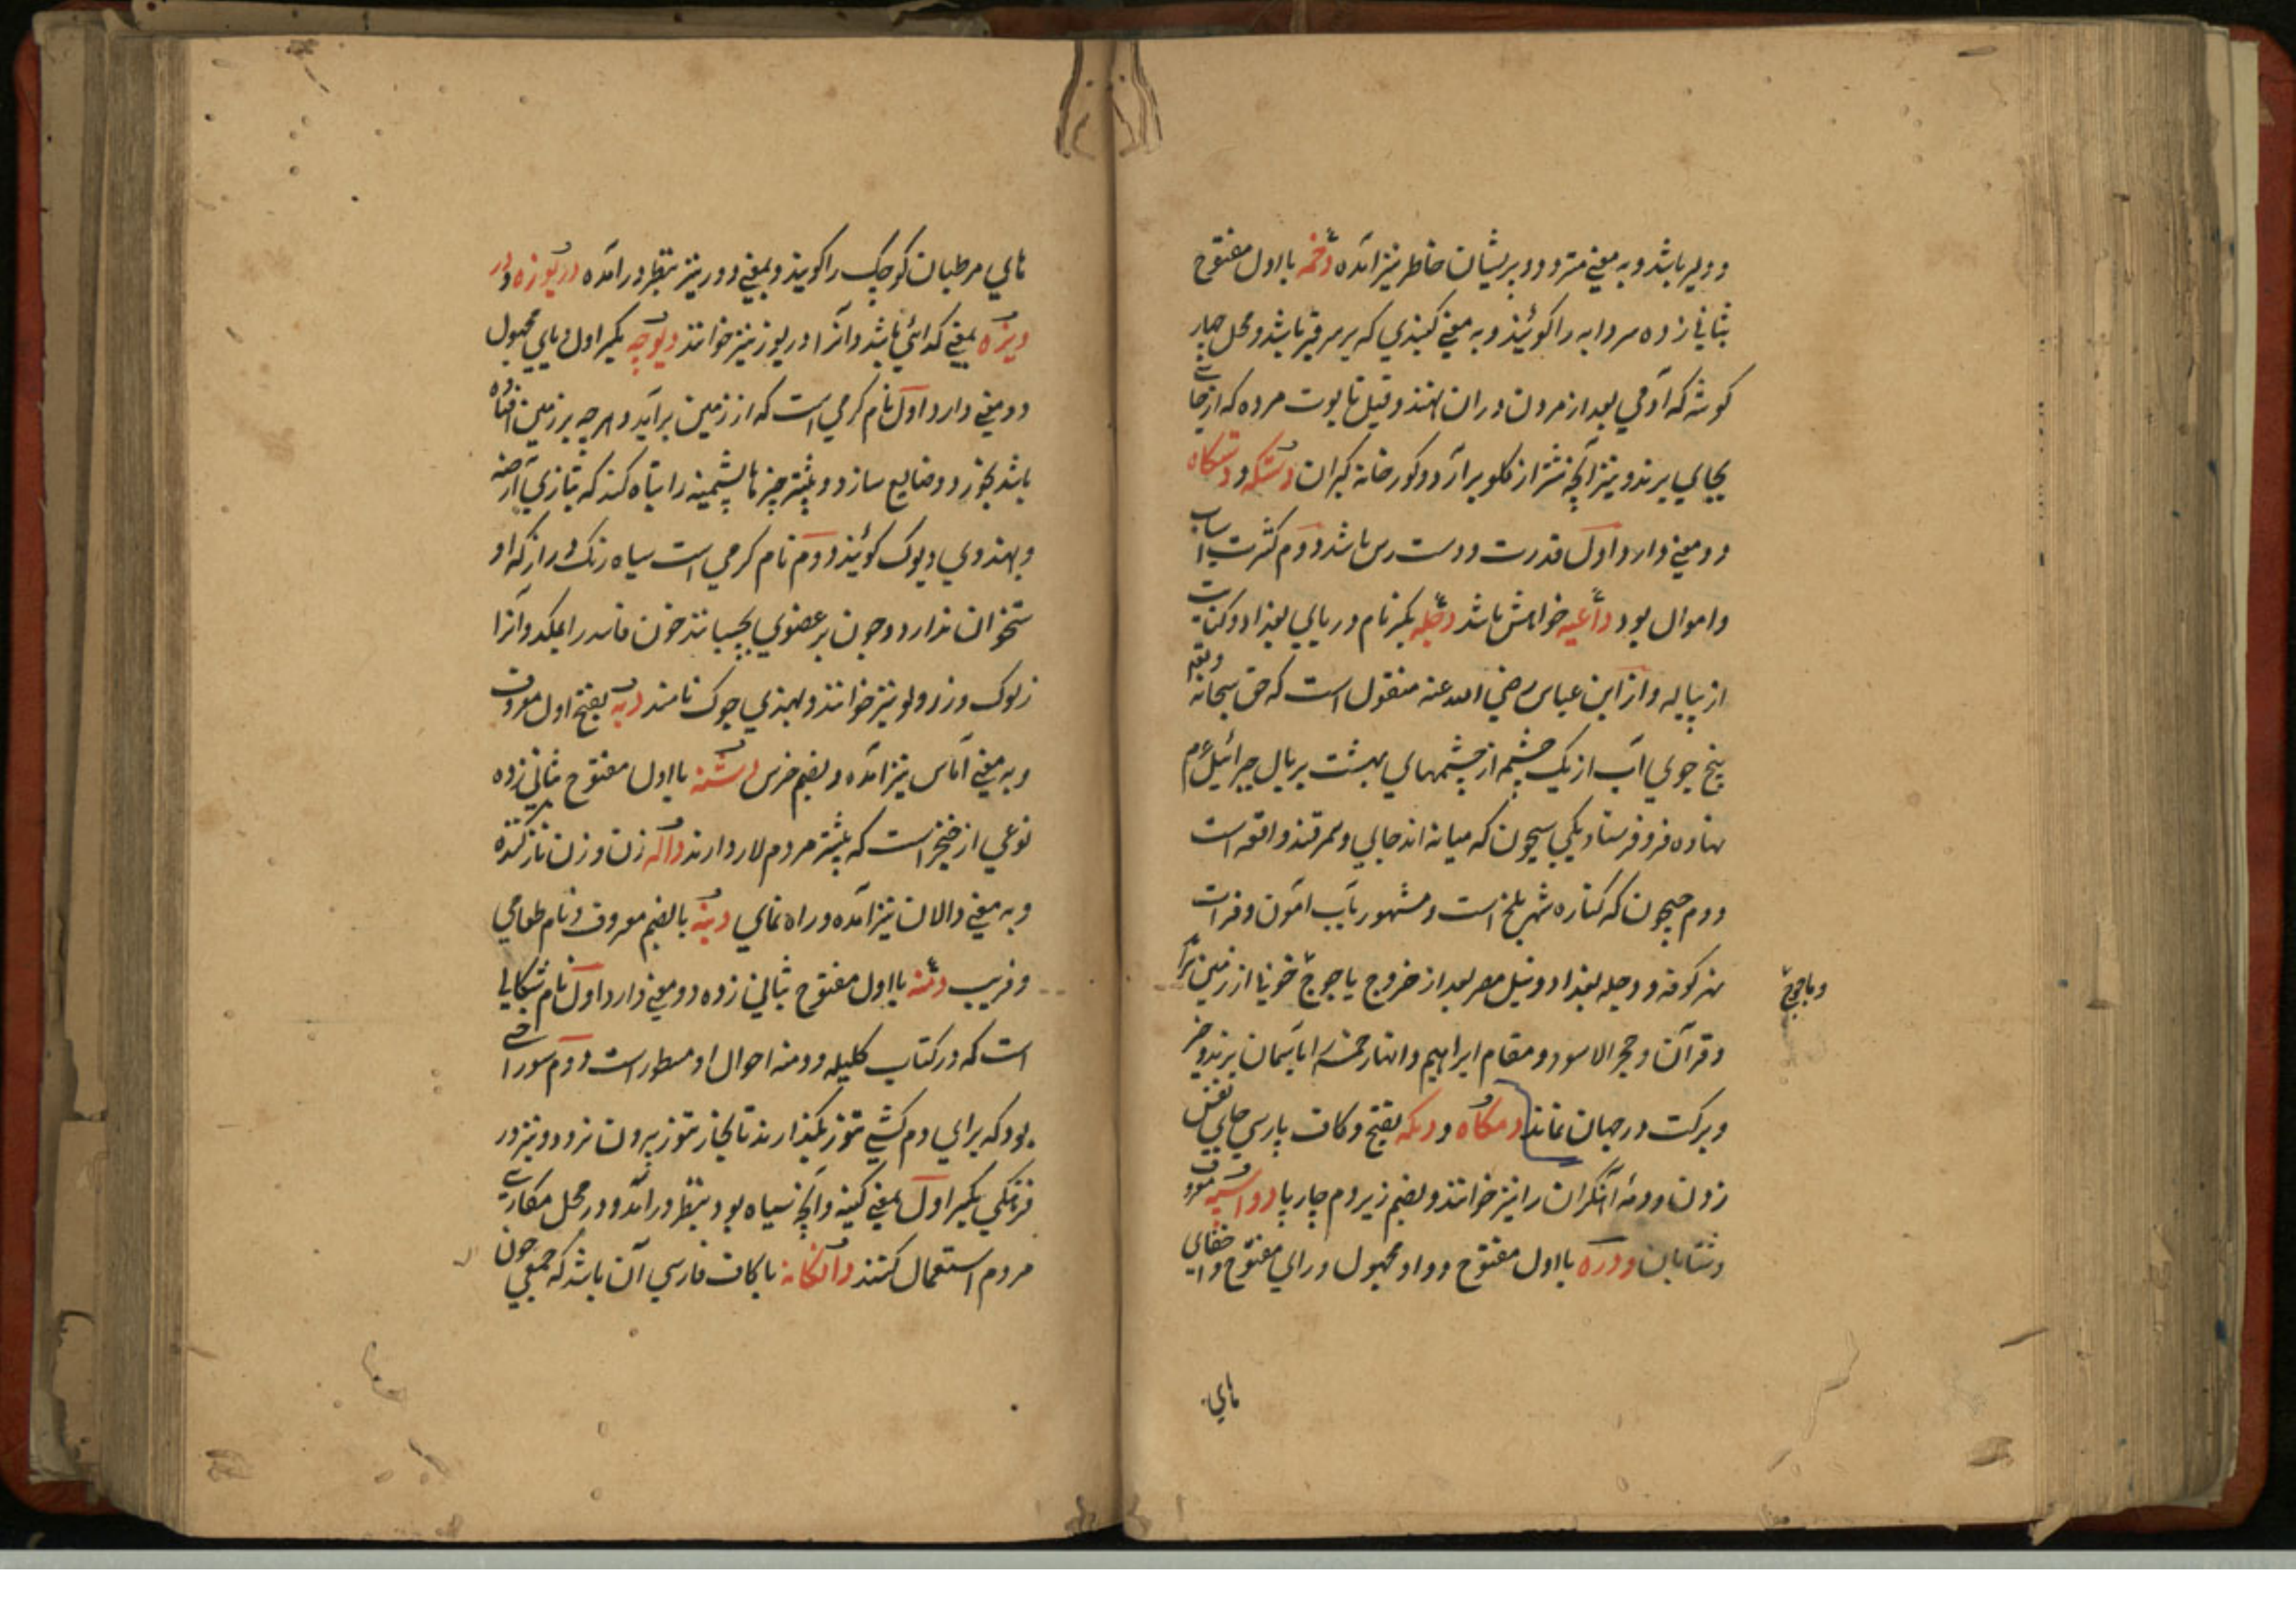 و دلیر باشد و به معنی متردد و پریشان خاطر نیز آمده دخمه بااول مفتوح
بثانی زده سردابه را کوئیند و به معنی کنبذی که بر سر قبر باشد و محل چهار
کوشه که آدمی بعد از مردن دران نهند و قبل تابوت مرده که از جائے
بجای برند و نیز آنچه شتر از کلو برآرد و کورخانه کبران دستکه و دستکاه
دو معنی دارد اول قدرت و دست رس باشد دوم کثرت اسباب
و اموال بود داعیه خواهش باشد دجله بکسر نام دریای بغداد و کنایت
از پیاله و از ابن عباس رضی الله عنه منقول است که حق سبحانه و تعم
پنج جوی آب از یک چشمه از چشمهای بهشت بر بال جبرائیل عم
نهاده فرو فرستاد یکی سیحون که میانه اندجان و سمرقند واقع است
دوم جیحون که کناره شهر بلخ است و مشهور بآب آمون و فرات
نهر کوفه و دجله بغداد و نیل مصر بعد از خروج یاجوج
و ماجوج
و قرآن و حجر الاسود و مقام ابراهیم و انهار خمسه را بآسمان برند و خیر
و برکت در جهان نماند دمکاه و دمکه بفتح و کاف پارسی جای نفس
زدن و دمهٔ آهنکران را نیز خوانند و بضم زیر دم چارپا دواسپه معروف
و شتابان دوره بااول مفتوح و واو مجهول و رای مفتوح و اخفای
های
های مرطبان کوچک را کویند و بمعنی دور نیز بنظر درآمده دریوزه و در
ویزه بمعنی کدائی باشد و آنرا دریوز نیز خوانند دیوچه بکسر اول و یای مجهول
دو معنی دارد اول نام کرمی است که از زمین برآید و هرچه بر زمین افتاده
باشد بخورد و ضایع سازد و بیشتر چیزها پشمینه را تباه کند که بتازی ارضه
و بهندوی دیوک کوئیند دوم نام کرمی است سیاه رنک دراز که او
ستخوان ندارد و چون بر عضوی بچسبانند خون فاسد را بمکد و آنرا
زلوک و زرو و لو نیز خوانند و بهندی جوک نامند دبه بفتح اول معروف
و به معنی آماس نیز آمده و بضم خرس دشنه بااول مفتوح بثانی زده
نوعی از خنجر است که بیشتر مردم لار دارند داله زن و زن ناز کننده
و به معنی دالان نیز آمده و راه نمای دنبه بالضم معروف و نام طعامی
و فریب دمنه بااول مفتوح بثانی زده دو معنی دارد اول نام شکالی
است که در کتاب کلیله و دمنه احوال او مسطور است دوم سوراخے
بود که برای دم کشی تنوز بکذارند تا بخار تنوز بیرون نرود و نیز در
فرهنکی بکسر اول بمعنی کینه و آنچه سیاه بود بنظر درآمد و در محل مکاری
مردم استعمال کنند دانکانه باکاف فارسی آن باشد که جمعی چون